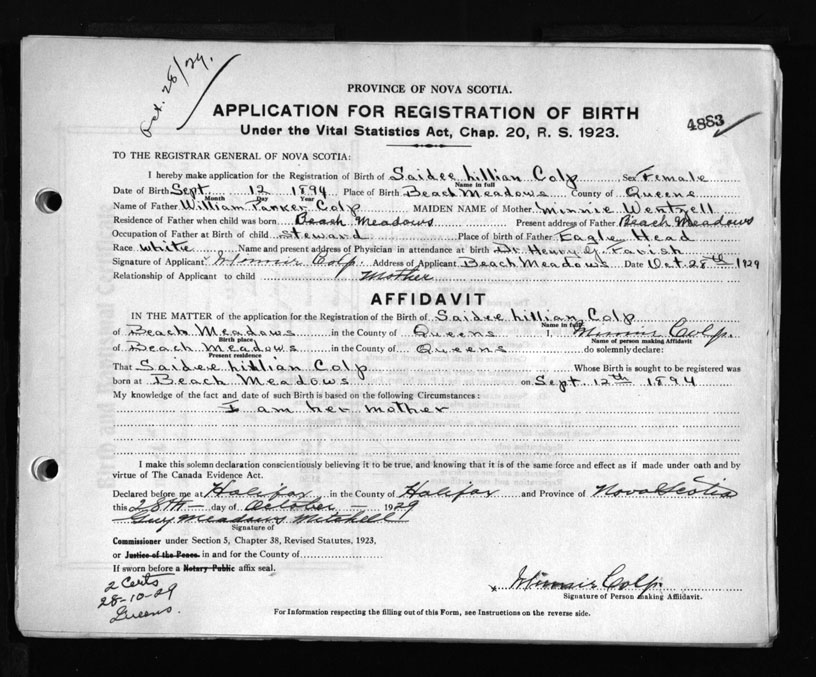 Oct. 28/29.
PROVINCE OF NOVA SCOTIA.
APPLICATION FOR REGISTRATION OF BIRTH
Under the Vital Statistics Act, Chap. 20, R. S. 1923.
4883
TO THE REGISTRAR GENERAL OF NOVA SCOTIA:
I hereby make application for the Registration of Birth of Saidee Lillian Colp Sex Female
Name in full
Date of Birth Sept 12 1894 Place of Birth Beach Meadows County of Queens
Month Day Year
Name of Father William Parker Colp MAIDEN NAME of Mother Minnie Wentzell
Residence of Father when child was born Beach Meadows Present address of Father Beach Meadows
Occupation of Father at Birth of child Steward Place of birth of Father Eagle Head
Race White Name and present address of Physician in attendance at birth Dr. Henry G. Farish
Signature of Applicant Minnie Colp. Address of Applicant Beach Meadows Date Oct. 28th 1929
Relationship of Applicant to child Mother
AFFIDAVIT
IN THE MATTER of the application for the Registration of the Birth of Saidee Lillian Colp
Name in full
of Beach Meadows in the County of Queens I, Minnie Colp.
Birth place, Name of person making Affidavit
of Beach Meadows in the County of Queens do solemnly declare:
Present residence
That Saidee Lillian Colp Whose Birth is sought to be registered was
born at Beach Meadows on Sept. 12th 1894
My knowledge of the fact and date of such Birth is based on the following Circumstances:
I am her mother
I make this solemn declaration conscientiously believing it to be true, and knowing that it is of the same force and effect as if made under oath and by
virtue of The Canada Evidence Act.
Declared before me at Halifax in the County of Halifax and Province of Nova Scotia
this 28th day of October 1929
Guy Meadows Mitchell
Signature of
Commissioner under Section 5, Chapter 38, Revised Statutes, 1923,
or Justice of the Peace in and for the County of
If sworn before a Notary Public affix seal.
2 Certs
28-10-29
Queens.
x Minnie Colp.
Signature of Person making Affidavit.
For Information respecting the filling out of this Form, see Instructions on the reverse side.